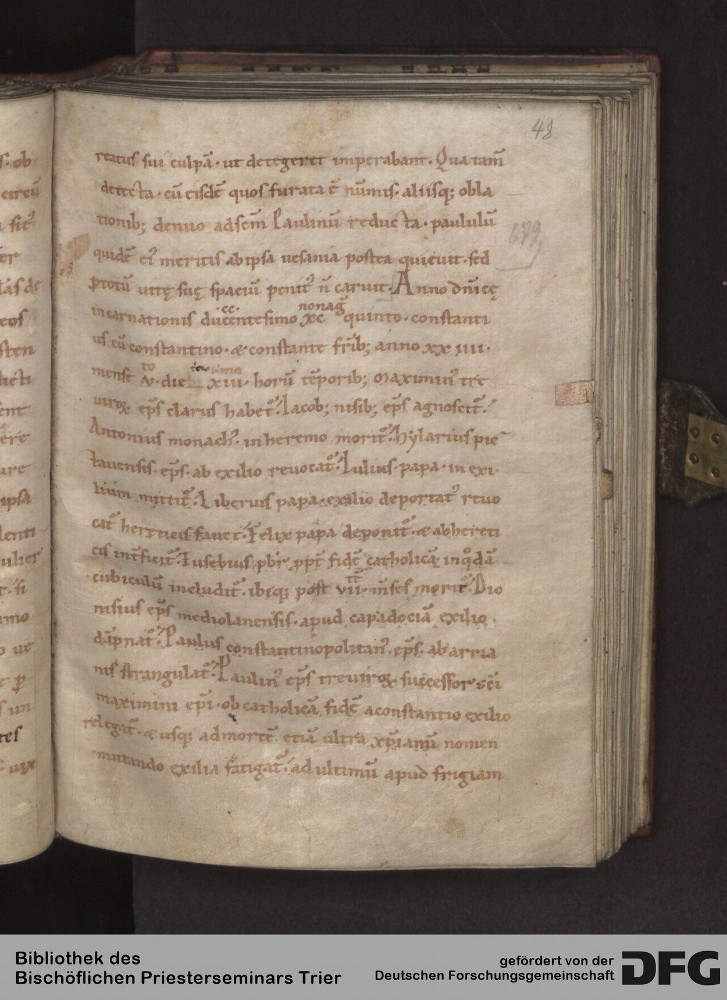 48
reatus sui culpā · ut detegeret imperabant · Qua tam̄
detecta · cū eisdē quos furata ē nūmis · aliisq; obla
tionib; denuo ad sc̄m Paulinū reducta · paululū
quidē ei᷒ meritis ab ipsa uesania postea quieuit · sed
ꝑ totū uitę suę spaciū penit᷒ n̄ caruit · Anno dn̄icę
cc nonag̅
incarnationis ducentesimo xc quinto · constanti
us cū constantino · & constante fr̄ib; anno xx iiii ·
to
mense v · die xiii · horū tēporib; Maximin᷒ tre
uiroꝝ ep̄s clarus habet᷒ · Iacob; nisib; ep̄s agnoscit᷒ ·
Antonius monach᷒ · in heremo morit᷒ · hylarius pic
tauensis · ep̄s · ab exilio reuocat᷒ · Iulius · papa · in exi ·
lium mittit᷒ · Liberius papa · exilio deportat᷒ reuo
cat᷒ hereticis fauet · Felix papa deponit᷒ · & ab hereti
cis int̄ficit᷒ · Eusebius p̄br ꝓpt̄ fidē catholicā in q̄dā
cubiculū includit᷒ · ibiq; post vii · m̄ses morit᷒ · Dio
nisius ep̄s mediolanensis · apud capadociā exilio ·
dāpnat᷒ · Paulus constantinopolitan᷒ · ep̄s · ab arria
nis strangulat᷒ · Paulin᷒ ep̄s treuiroꝝ successor sc̄i
maximini ep̄i · ob catholicā fidē a constantio exilio
relegat᷒ · & usq; ad mortē etiā ultra xp̄ianū nomen
mutando exilia fatigat᷒ · ad ultimū apud frigiam
Bibliothek des
Bischöflichen Priesterseminars Trier
gefördert von der
Deutschen Forschungsgemeinschaft
DFG